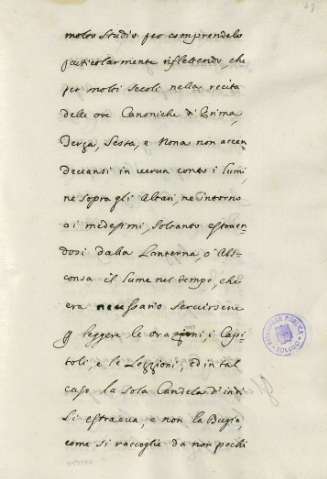 molto Studio per comprenderlo
particolarmente riflettendo, che
per molti Secoli nella recita
delle ore Canoniche di Prima,
Terza, Sesta, e Nona non accen
devansi in verun conto i lumi,
ne sopra gli Altari, ne intorno
ai medesimi, Soltanto estraen
dosi dalla Lanterna, o
il lume nel tempo, che
era necessario servirsene
p leggere le orazioni, i Capi
toli, e le Lezzioni, ed in tal
caso la sola Candela d'indi
si estraeva, e non la Bugia,
come si raccoglie da non pochi